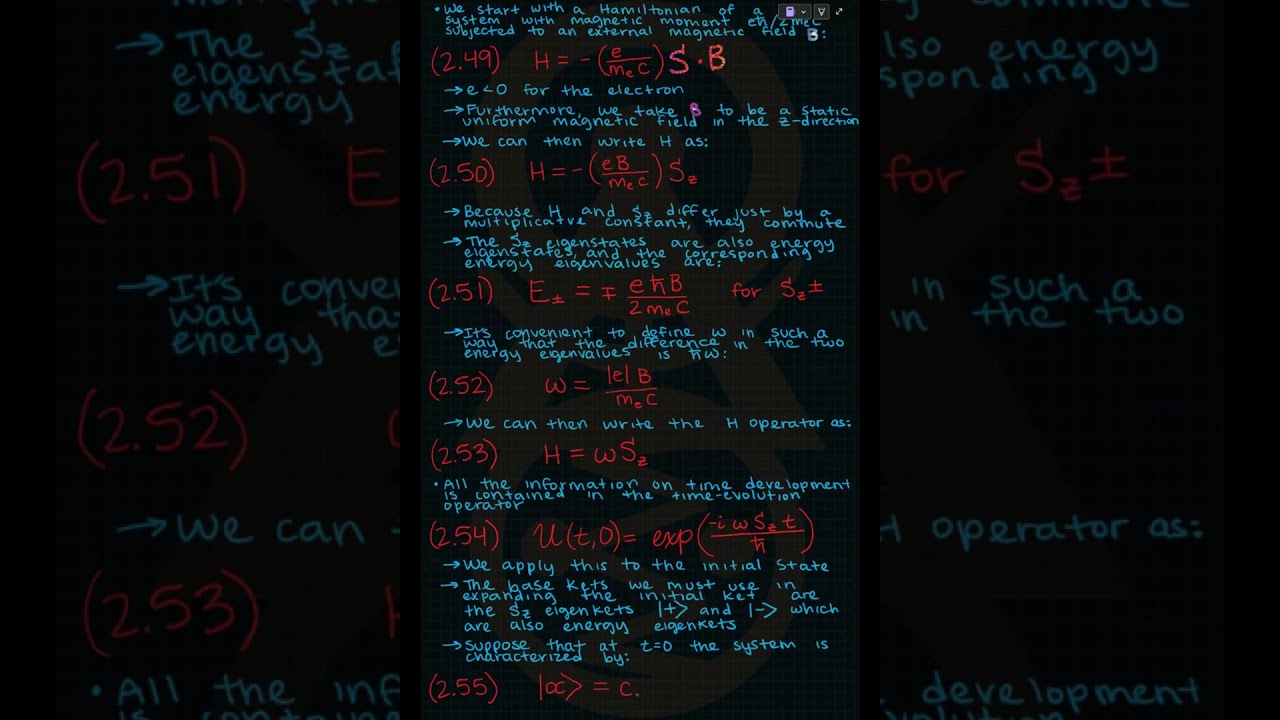 • We start with a Hamiltonian of a
system with magnetic moment eħ/2mₑc
subjected to an external magnetic field B:
(2.49) H = -(e/mₑc) S · B
→ e<0 for the electron
→ Furthermore, we take B to be a static
uniform magnetic field in the z-direction
→ We can then write H as:
(2.50) H = -(eB/mₑc) S_z
→ Because H and S_z differ just by a
multiplicative constant, they commute
→ The S_z eigenstates are also energy
eigenstates, and the corresponding
energy eigenvalues are:
(2.51) E_± = ∓ eħB/2mₑc for S_z±
→ It's convenient to define ω in such a
way that the difference in the two
energy eigenvalues is ħω:
(2.52) ω = |e|B/mₑc
→ We can then write the H operator as:
(2.53) H = ωS_z
• All the information on time development
is contained in the time-evolution
operator
(2.54) U(t,0) = exp(-iωS_z t/ħ)
→ We apply this to the initial state
→ The base kets we must use in
expanding the initial ket are
the S_z eigenkets |+> and |-> which
are also energy eigenkets
→ Suppose that at t=0 the system is
characterized by:
(2.55) |α> = c.